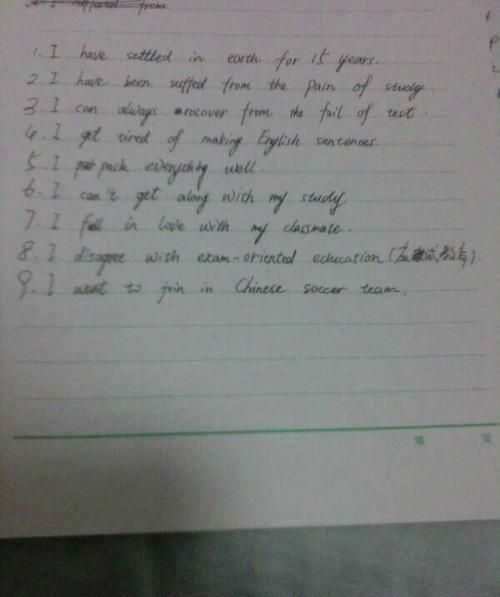 suffered from
1. I have settled in earth for 15 years.
2. I have been suffed from the pain of study.
3. I can always rocover from the fail of test.
4. I get tired of making English sentences.
5. I pack everything well.
6. I can't get along with my study.
7. I fell in love with my classmate.
8. I disagree with exam-oriented education (应试教育).
9. I want to join in Chinese soccer team.